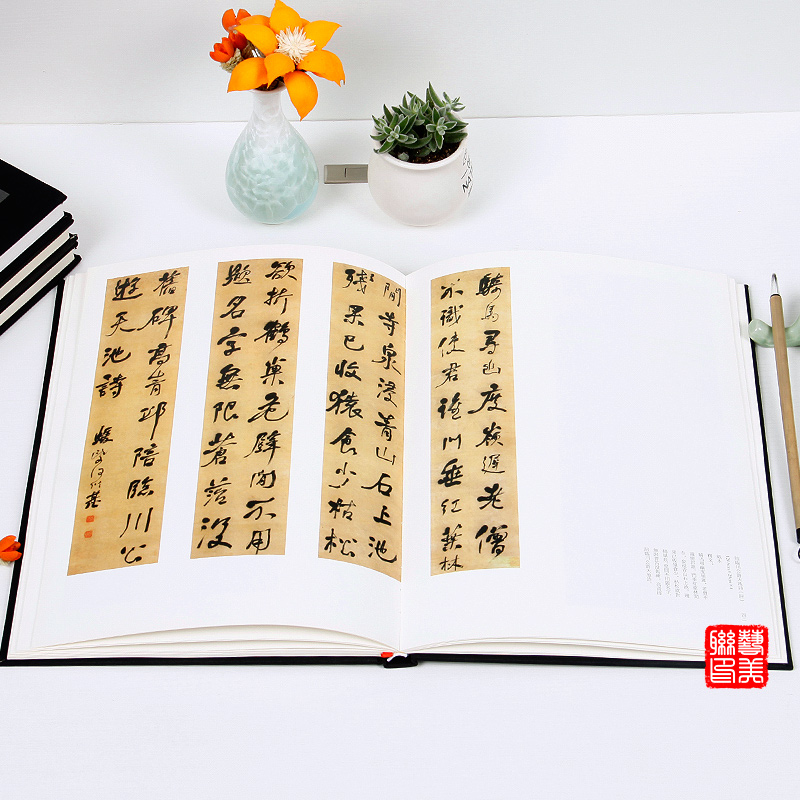 騎馬尋幽度嶺遲老僧
不識使君誰門垂紅葉林
間寺泉浸青山石上池
殘果已收猿食少枯松
欲折鶴巢危壁間不用
題名字無限蒼苔沒
舊碑高青邱陪臨川公
遊天池詩
蝯叟何紹基
藝美
聯